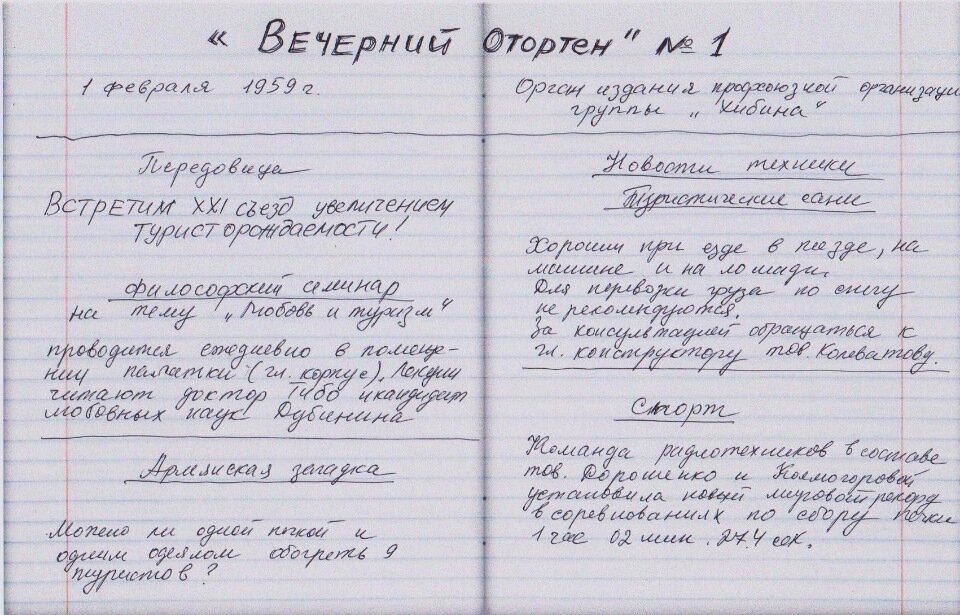 "Вечерний Отортен" № 1
1 февраля 1959 г.
Орган издания профсоюзной организации
группы „Хибина"
Передовица
Встретим XXI съезд увеличением
туристорождаемости!
Философский семинар
на тему „Любовь и туризм"
проводится ежедневно в помеще-
нии палатки (гл. корпус). Лекции
читают доктор Тибо и кандидат
любовных наук Дубинина
Армянская загадка
Можно ли одной печкой и
одним одеялом обогреть 9
туристов?
Новости техники
Туристические сани
Хороши при езде в поезде, на
машине и на лошади.
Для перевозки груза по снегу
не рекомендуются.
За консультацией обращаться к
гл. конструктору тов. Колеватову.
Спорт
Команда радиотехников в составе
тов. Дорошенко и Колмогоровой
установила новый мировой рекорд
в соревнованиях по сбору печки
1 час 02 мин. 27.4 сек.